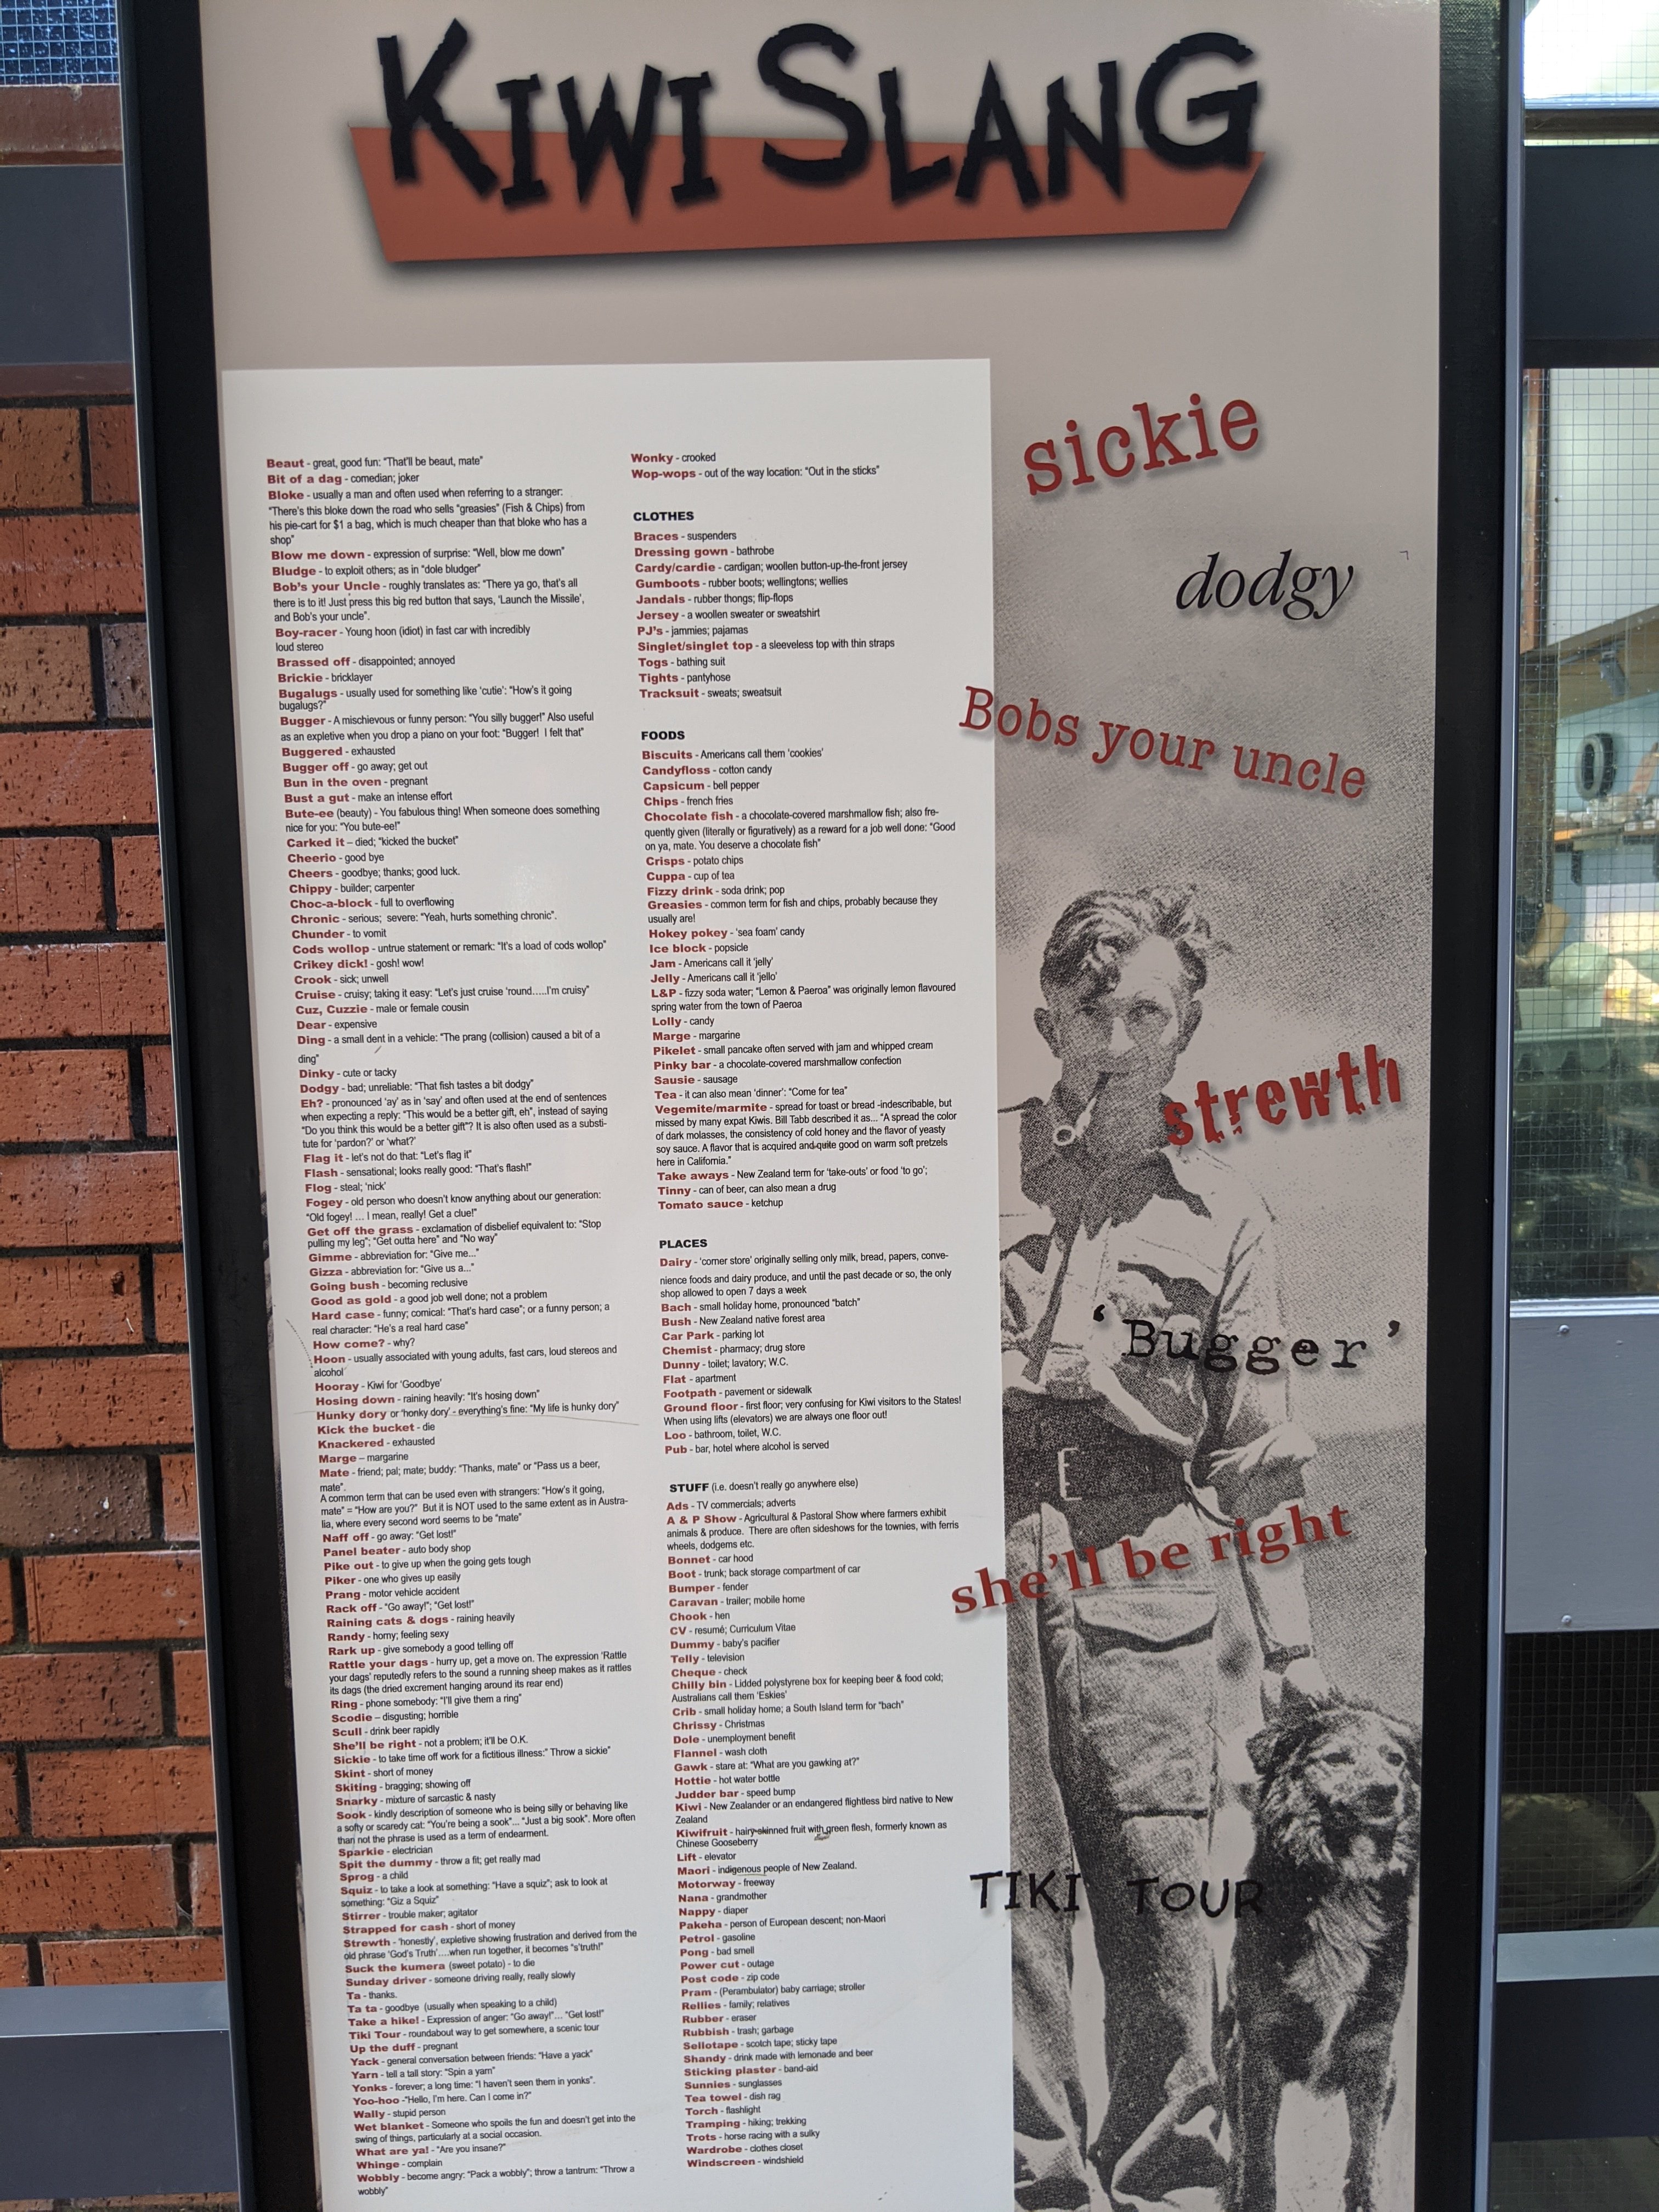 KIWI SLANG
Beaut - great, good fun: "That'll be beaut, mate"
Bit of a dag - comedian; joker
Bloke - usually a man and often used when referring to a stranger:
"There's this bloke down the road who sells "greasies" (Fish & Chips) from
his pie-cart for $1 a bag, which is much cheaper than that bloke who has a
shop"
Blow me down - expression of surprise: "Well, blow me down"
Bludge - to exploit others; as in "dole bludger"
Bob's your Uncle - roughly translates as: "There ya go, that's all
there is to it! Just press this big red button that says, 'Launch the Missile',
and Bob's your uncle".
Boy-racer - Young hoon (idiot) in fast car with incredibly
loud stereo
Brassed off - disappointed; annoyed
Brickie - bricklayer
Bugalugs - usually used for something like 'cutie': "How's it going
bugalugs?"
Bugger - A mischievous or funny person: "You silly bugger!" Also useful
as an expletive when you drop a piano on your foot: "Bugger! I felt that"
Buggered - exhausted
Bugger off - go away; get out
Bun in the oven - pregnant
Bust a gut - make an intense effort
Bute-ee (beauty) - You fabulous thing! When someone does something
nice for you: "You bute-ee!"
Carked it – died; "kicked the bucket"
Cheerio - good bye
Cheers - goodbye; thanks; good luck.
Chippy - builder; carpenter
Choc-a-block - full to overflowing
Chronic - serious; severe: "Yeah, hurts something chronic".
Chunder - to vomit
Cods wollop - untrue statement or remark: "It's a load of cods wollop"
Crikey dick! - gosh! wow!
Crook - sick; unwell
Cruise - cruisy; taking it easy: "Let's just cruise 'round.....I'm cruisy"
Cuz, Cuzzie - male or female cousin
Dear - expensive
Ding - a small dent in a vehicle: "The prang (collision) caused a bit of a
ding"
Dinky - cute or tacky
Dodgy - bad; unreliable: "That fish tastes a bit dodgy"
Eh? - pronounced 'ay' as in 'say' and often used at the end of sentences
when expecting a reply: "This would be a better gift, eh", instead of saying
"Do you think this would be a better gift"? It is also often used as a substi-
tute for 'pardon?' or 'what?'
Flag it - let's not do that: "Let's flag it"
Flash - sensational; looks really good: "That's flash!"
Flog - steal; 'nick'
Fogey - old person who doesn't know anything about our generation:
"Old fogey! ... I mean, really! Get a clue!"
Get off the grass - exclamation of disbelief equivalent to: "Stop
pulling my leg"; "Get outta here" and "No way"
Gimme - abbreviation for: "Give me..."
Gizza - abbreviation for: "Give us a..."
Going bush - becoming reclusive
Good as gold - a good job well done; not a problem
Hard case - funny; comical: "That's hard case"; or a funny person; a
real character: "He's a real hard case"
How come? - why?
Hoon - usually associated with young adults, fast cars, loud stereos and
alcohol
Hooray - Kiwi for 'Goodbye'
Hosing down - raining heavily: "It's hosing down"
Hunky dory or 'honky dory' - everything's fine: "My life is hunky dory"
Kick the bucket - die
Knackered - exhausted
Marge – margarine
Mate - friend; pal; mate; buddy: "Thanks, mate" or "Pass us a beer,
mate".
A common term that can be used even with strangers: "How's it going,
mate" = "How are you?" But it is NOT used to the same extent as in Austra-
lia, where every second word seems to be "mate"
Naff off - go away: "Get lost!"
Panel beater - auto body shop
Pike out - to give up when the going gets tough
Piker - one who gives up easily
Prang - motor vehicle accident
Rack off - "Go away!"; "Get lost!"
Raining cats & dogs - raining heavily
Randy - horny; feeling sexy
Rark up - give somebody a good telling off
Rattle your dags - hurry up, get a move on. The expression 'Rattle
your dags' reputedly refers to the sound a running sheep makes as it rattles
its dags (the dried excrement hanging around its rear end)
Ring - phone somebody: "I'll give them a ring"
Scodie – disgusting; horrible
Scull - drink beer rapidly
She'll be right - not a problem; it'll be O.K.
Sickie - to take time off work for a fictitious illness:" Throw a sickie"
Skint - short of money
Skiting - bragging; showing off
Snarky - mixture of sarcastic & nasty
Sook - kindly description of someone who is being silly or behaving like
a softy or scaredy cat: "You're being a sook"... "Just a big sook". More often
than not the phrase is used as a term of endearment.
Sparkie - electrician
Spit the dummy - throw a fit; get really mad
Sprog - a child
Squiz - to take a look at something: "Have a squiz"; ask to look at
something: "Giz a Squiz"
Stirrer - trouble maker; agitator
Strapped for cash - short of money
Strewth - 'honestly', expletive showing frustration and derived from the
old phrase 'God's Truth'....when run together, it becomes "s'truth!"
Suck the kumera (sweet potato) - to die
Sunday driver - someone driving really, really slowly
Ta - thanks.
Ta ta - goodbye (usually when speaking to a child)
Take a hike! - Expression of anger: "Go away!"... "Get lost!"
Tiki Tour - roundabout way to get somewhere, a scenic tour
Up the duff - pregnant
Yack - general conversation between friends: "Have a yack"
Yarn - tell a tall story: "Spin a yarn"
Yonks - forever; a long time: "I haven't seen them in yonks".
Yoo-hoo -"Hello, I'm here. Can I come in?"
Wally - stupid person
Wet blanket - Someone who spoils the fun and doesn't get into the
swing of things, particularly at a social occasion.
What are ya! - "Are you insane?"
Whinge - complain
Wobbly - become angry: "Pack a wobbly"; throw a tantrum: "Throw a
wobbly"
Wonky - crooked
Wop-wops - out of the way location: "Out in the sticks"
CLOTHES
Braces - suspenders
Dressing gown - bathrobe
Cardy/cardie - cardigan; woollen button-up-the-front jersey
Gumboots - rubber boots; wellingtons; wellies
Jandals - rubber thongs; flip-flops
Jersey - a woollen sweater or sweatshirt
PJ's - jammies; pajamas
Singlet/singlet top - a sleeveless top with thin straps
Togs - bathing suit
Tights - pantyhose
Tracksuit - sweats; sweatsuit
FOODS
Biscuits - Americans call them 'cookies'
Candyfloss - cotton candy
Capsicum - bell pepper
Chips - french fries
Chocolate fish - a chocolate-covered marshmallow fish; also fre-
quently given (literally or figuratively) as a reward for a job well done: "Good
on ya, mate. You deserve a chocolate fish"
Crisps - potato chips
Cuppa - cup of tea
Fizzy drink - soda drink; pop
Greasies - common term for fish and chips, probably because they
usually are!
Hokey pokey - 'sea foam' candy
Ice block - popsicle
Jam - Americans call it 'jelly'
Jelly - Americans call it 'jello'
L&P - fizzy soda water; "Lemon & Paeroa" was originally lemon flavoured
spring water from the town of Paeroa
Lolly - candy
Marge - margarine
Pikelet - small pancake often served with jam and whipped cream
Pinky bar - a chocolate-covered marshmallow confection
Sausie - sausage
Tea - it can also mean 'dinner': "Come for tea"
Vegemite/marmite - spread for toast or bread -indescribable, but
missed by many expat Kiwis. Bill Tabb described it as... "A spread the color
of dark molasses, the consistency of cold honey and the flavor of yeasty
soy sauce. A flavor that is acquired and quite good on warm soft pretzels
here in California."
Take aways - New Zealand term for 'take-outs' or food 'to go';
Tinny - can of beer, can also mean a drug
Tomato sauce - ketchup
PLACES
Dairy - 'corner store' originally selling only milk, bread, papers, conve-
nience foods and dairy produce, and until the past decade or so, the only
shop allowed to open 7 days a week
Bach - small holiday home, pronounced "batch"
Bush - New Zealand native forest area
Car Park - parking lot
Chemist - pharmacy; drug store
Dunny - toilet; lavatory; W.C.
Flat - apartment
Footpath - pavement or sidewalk
Ground floor - first floor; very confusing for Kiwi visitors to the States!
When using lifts (elevators) we are always one floor out!
Loo - bathroom, toilet, W.C.
Pub - bar, hotel where alcohol is served
STUFF (i.e. doesn't really go anywhere else)
Ads - TV commercials; adverts
A & P Show - Agricultural & Pastoral Show where farmers exhibit
animals & produce. There are often sideshows for the townies, with ferris
wheels, dodgems etc.
Bonnet - car hood
Boot - trunk; back storage compartment of car
Bumper - fender
Caravan - trailer; mobile home
Chook - hen
CV - resumé; Curriculum Vitae
Dummy - baby's pacifier
Telly - television
Cheque - check
Chilly bin - Lidded polystyrene box for keeping beer & food cold;
Australians call them 'Eskies'
Crib - small holiday home; a South Island term for "bach"
Chrissy - Christmas
Dole - unemployment benefit
Flannel - wash cloth
Gawk - stare at: "What are you gawking at?"
Hottie - hot water bottle
Judder bar - speed bump
Kiwi - New Zealander or an endangered flightless bird native to New
Zealand
Kiwifruit - hairy-skinned fruit with green flesh, formerly known as
Chinese Gooseberry
Lift - elevator
Maori - indigenous people of New Zealand.
Motorway - freeway
Nana - grandmother
Nappy - diaper
Pakeha - person of European descent; non-Maori
Petrol - gasoline
Pong - bad smell
Power cut - outage
Post code - zip code
Pram - (Perambulator) baby carriage; stroller
Rellies - family; relatives
Rubber - eraser
Rubbish - trash; garbage
Sellotape - scotch tape; sticky tape
Shandy - drink made with lemonade and beer
Sticking plaster - band-aid
Sunnies - sunglasses
Tea towel - dish rag
Torch - flashlight
Tramping - hiking; trekking
Trots - horse racing with a sulky
Wardrobe - clothes closet
Windscreen - windshield
sickie
dodgy
Bobs your uncle
strewth
'Bugger'
she'll be right
TIKI TOUR